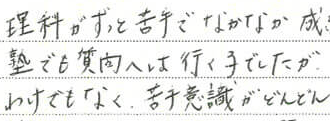 理科がずっと苦手でなかなか成
塾でも質問へは行く子でしたが
わけでもなく、苦手意識がどんどん